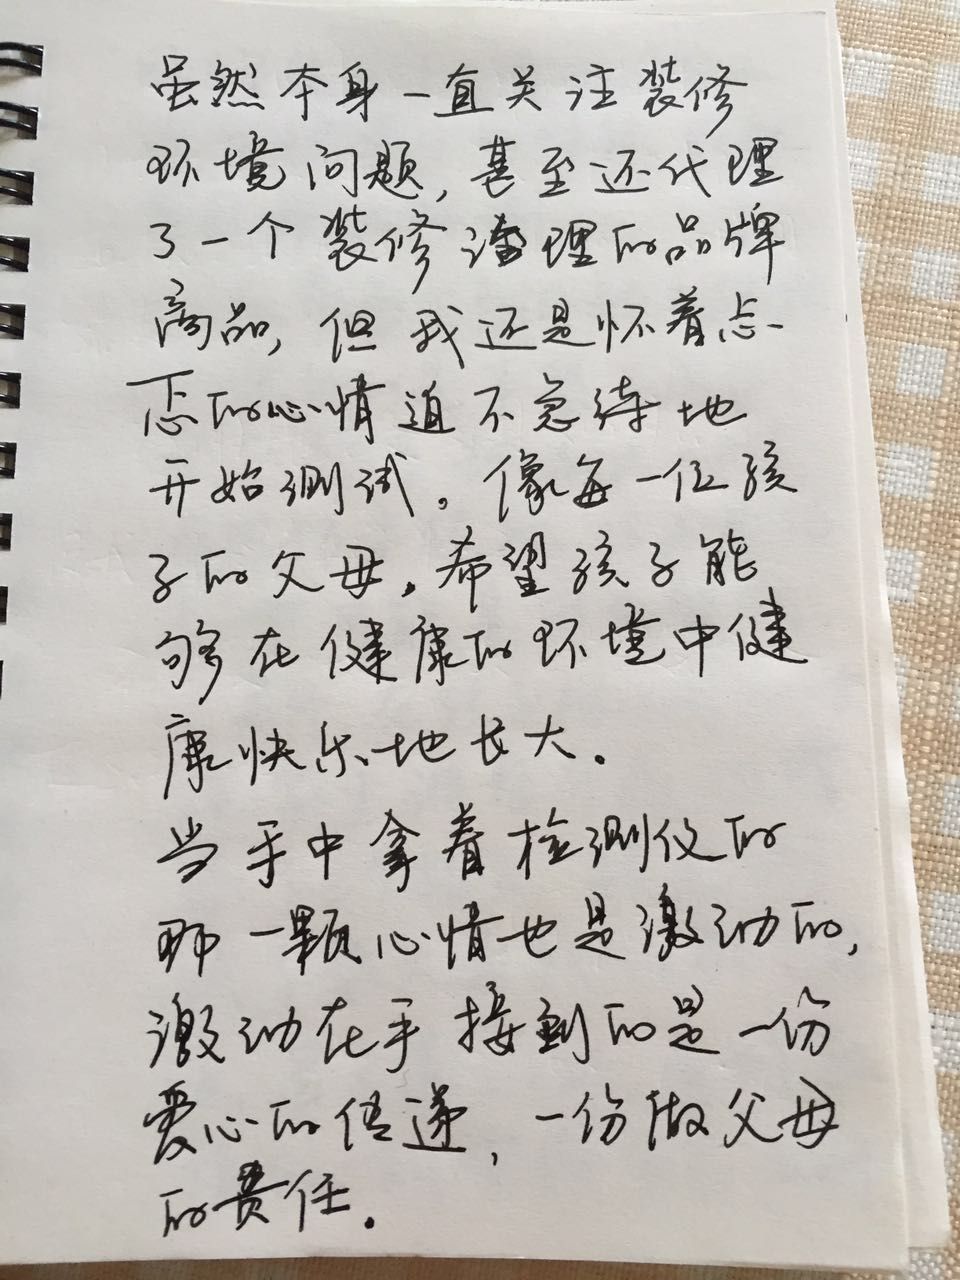 虽然本身一直关注装修
环境问题,甚至还代理
了一个装修治理的品牌
商品,但我还是怀着忐
忑的心情迫不急待地
开始测试。像每一位孩
子的父母,希望孩子能
够在健康的环境中健
康快乐地长大。
当手中拿着检测仪的
那一颗心情也是激动的,
激动在手接到的是一份
爱心的传递,一份做父母
的责任.